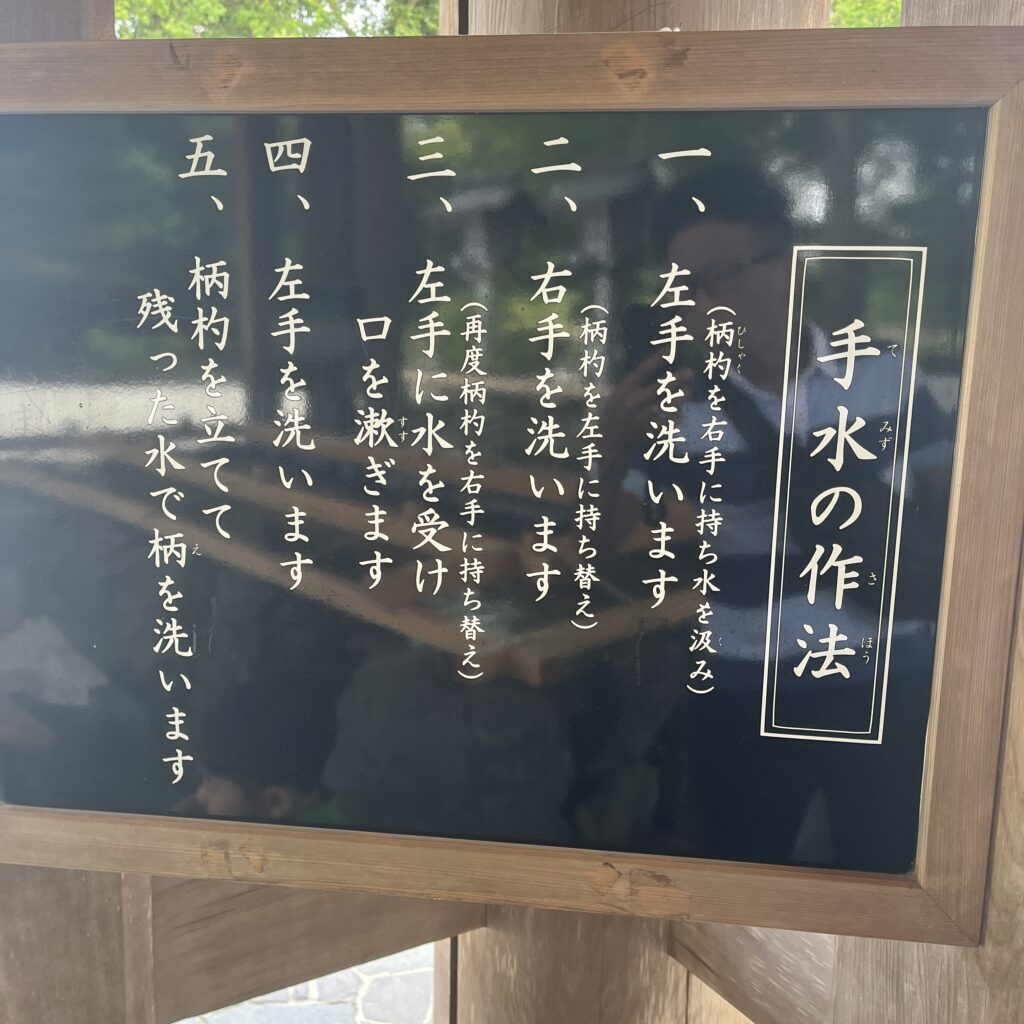 手水の作法
てみずさほう
一、
（柄杓を右手に持ち水を汲み）
ひしゃくく
左手を洗います
二、
（柄杓を左手に持ち替え）
右手を洗います
三、
（再度柄杓を右手に持ち替え）
左手に水を受け
口を漱ぎます
すす
四、左手を洗います
五、柄杓を立てて
残った水で柄を洗います
え